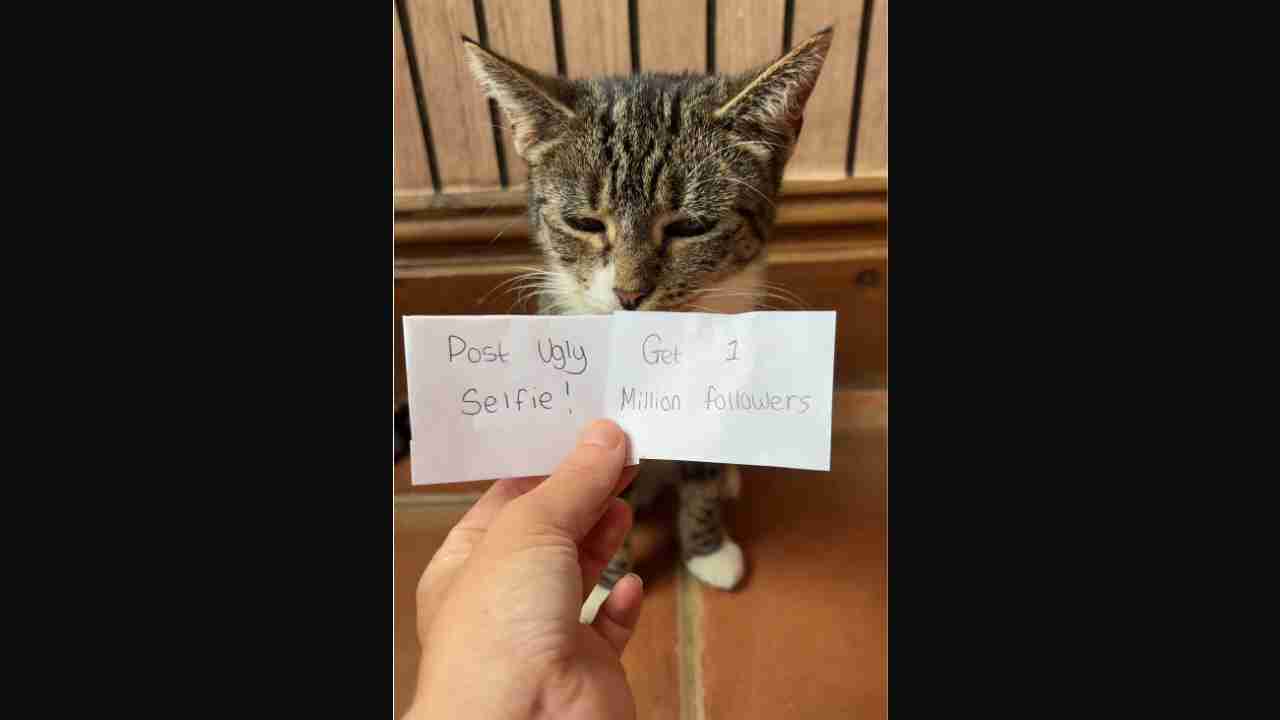 Post Ugly
Selfie!
Get 1
Million followers